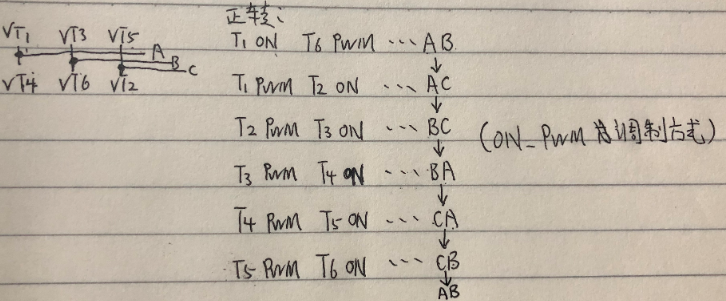 正转:
VT1 VT3 VT5 A
B
C
VT4 VT6 VT2
T1 ON T6 PWM ··· AB
↓
T1 PWM T2 ON ··· AC
↓
T2 PWM T3 ON ··· BC (ON_PWM 为调制方式)
↓
T3 PWM T4 ON ··· BA
↓
T4 PWM T5 ON ··· CA
↓
T5 PWM T6 ON ··· CB
↓
AB